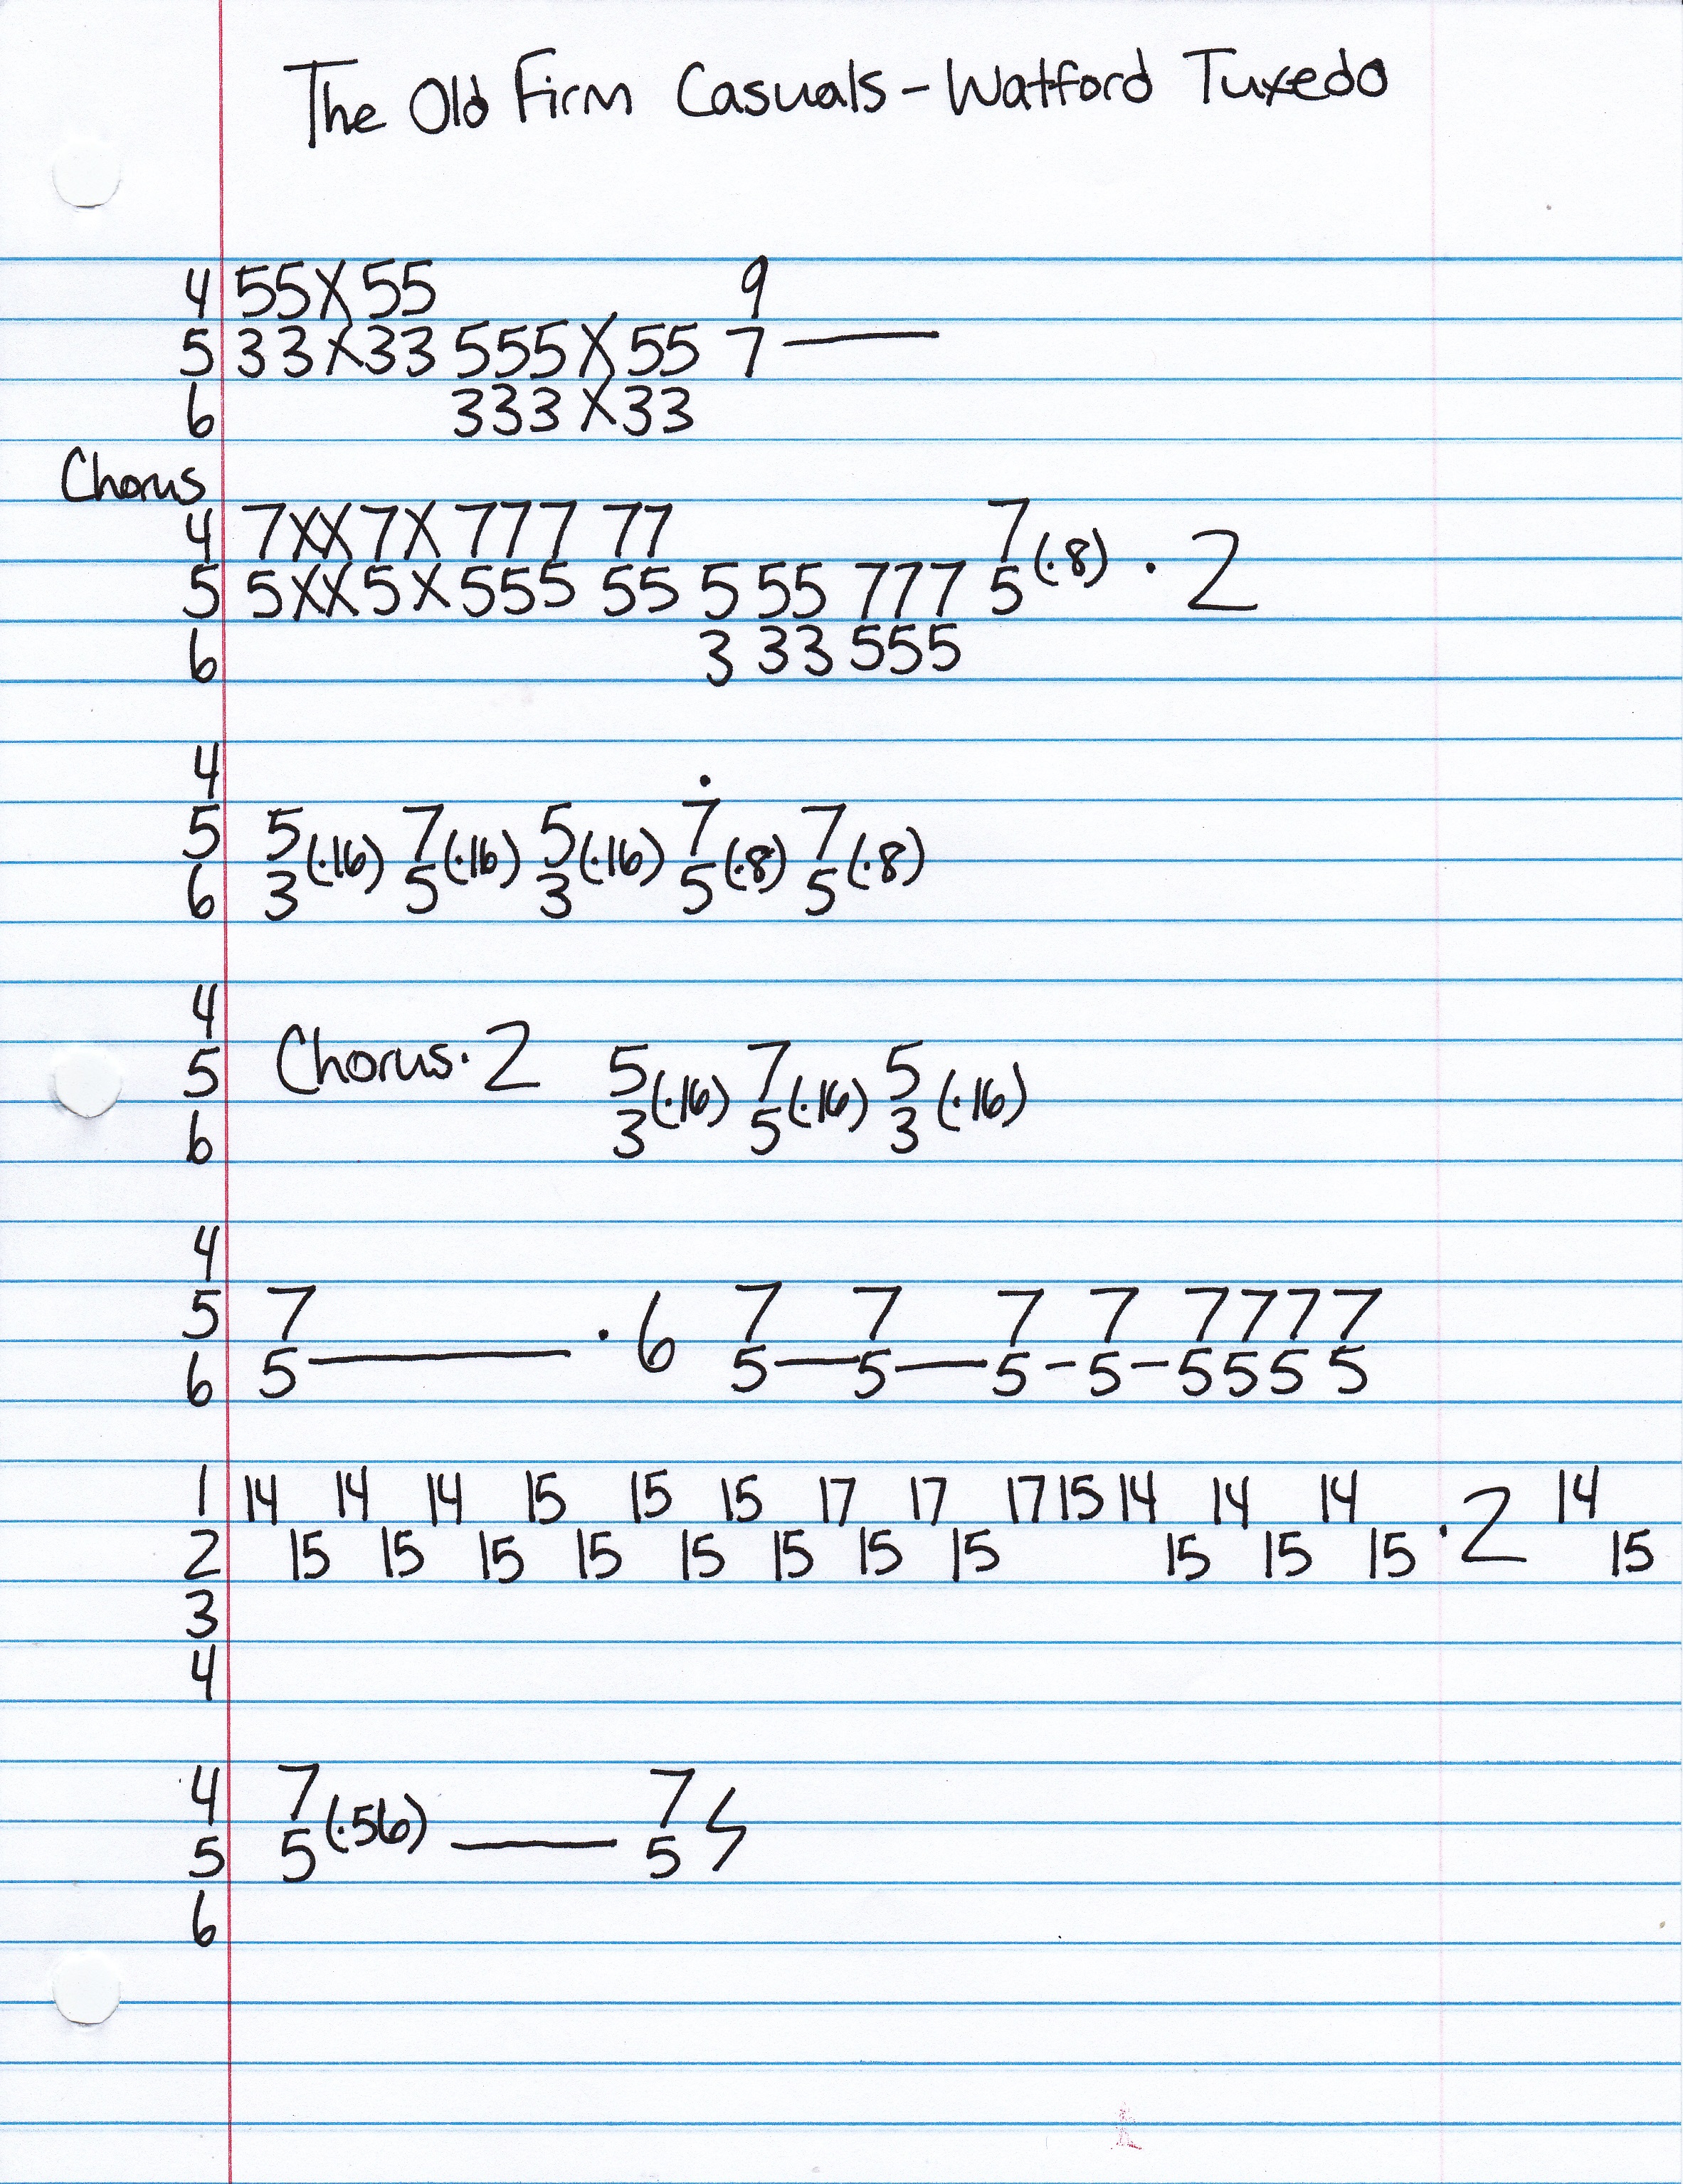 The Old Firm Casuals - Watford Tuxedo
4 55X55 9
5 33X33 555X55 7 ——
6 333X33
Chorus
4 7XX7X 777 77 7
5 5XX5X555 55 5 55 777 5 (·8) · 2
6 3 33 555
4 ·
5 5 (·16) 7 (·16) 5 (·16) 7 (·8) 7 (·8)
6 3 5 3 5 5
4
5 Chorus · 2 5 (·16) 7 (·16) 5 (·16)
6 3 5 3
4
5 7 · 6 7 7 7 7 7777
6 5 —— 5—5—5-5-5555
1 14 14 14 15 15 15 17 17 17 15 14 14 14 · 2 14
2 15 15 15 15 15 15 15 15 15 15 15 15
3
4
4 7 (·56) —— 7
5 5 5
6